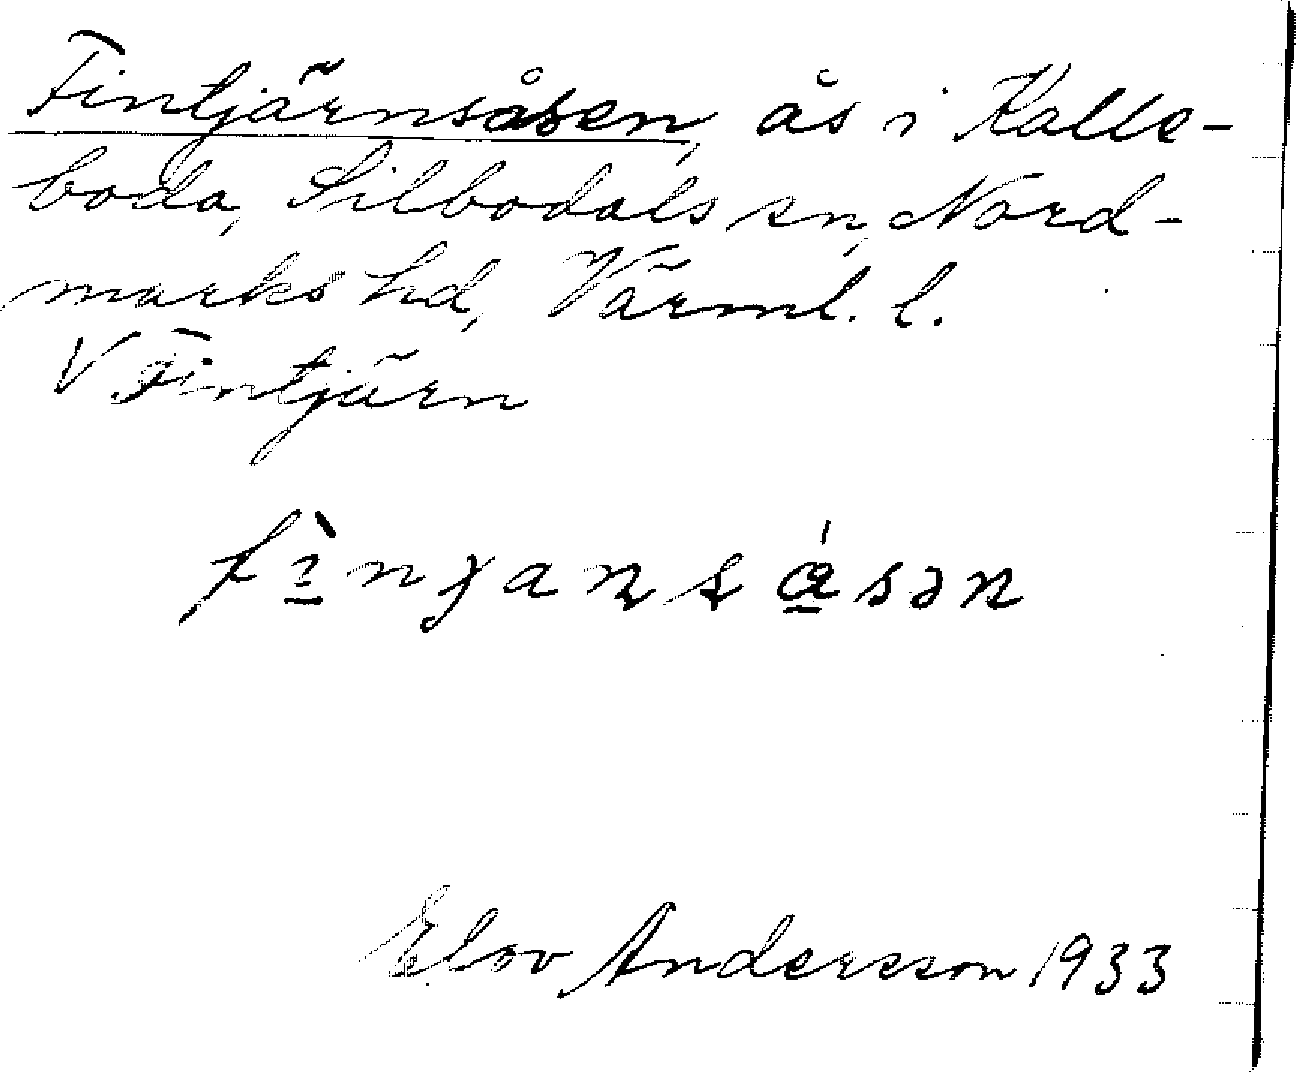 Fintjärnsåsen, ås i Kalle-
boda, Silbodals sn, Nord-
marks hd, Värml. l.
V. Fintjärn
Elov Andersson 1933